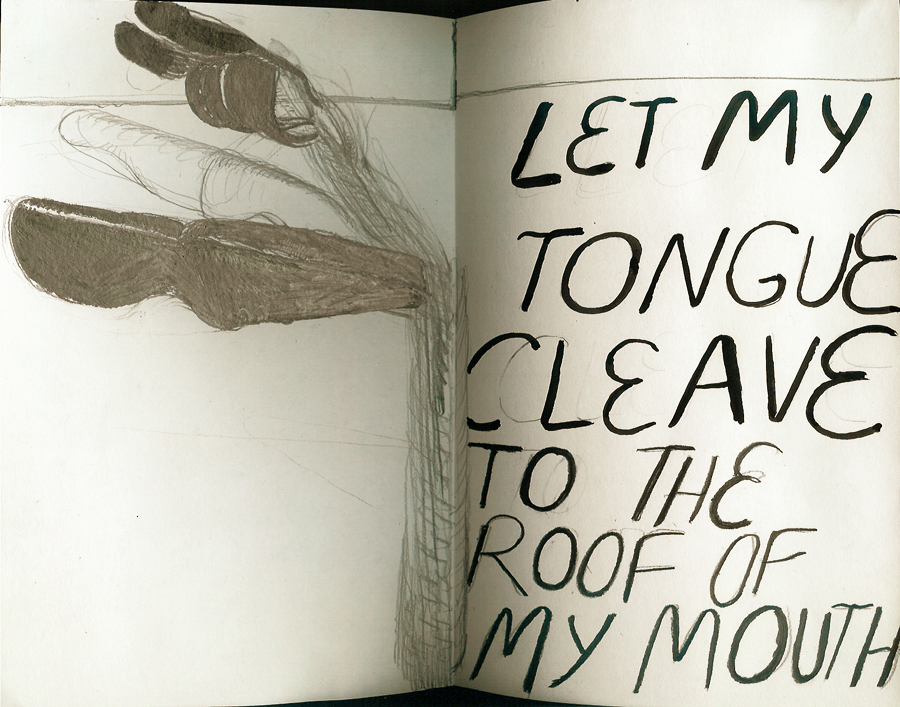 LET MY
TONGUE
CLEAVE
TO THE
ROOF OF
MY MOUTH